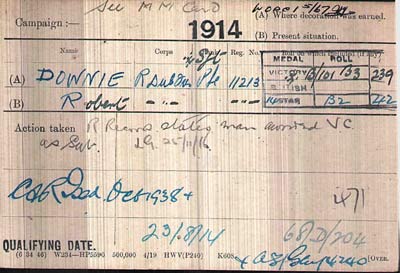 See M M Card
Campaign:— 1914 (A) Where decoration was earned.
(B) Present situation.
Name Corps Reg. No. Roll on which
MEDAL ROLL
(A) DOWNIE R Dub Fus Pte 11213 VICTORY B/101 B3 239
BRITISH
(B) Robert —"— —"— 14 STAR 132 242
Action taken R Recors states man awarded VC
as Sgt. LG. 25/11/16
Dead. Oct 1938
471
QUALIFYING DATE. 23/8/14 68/D/204
(6 34 46) W234—HP5590 500,000 4/19 HWV(P240) K608 [OVER.